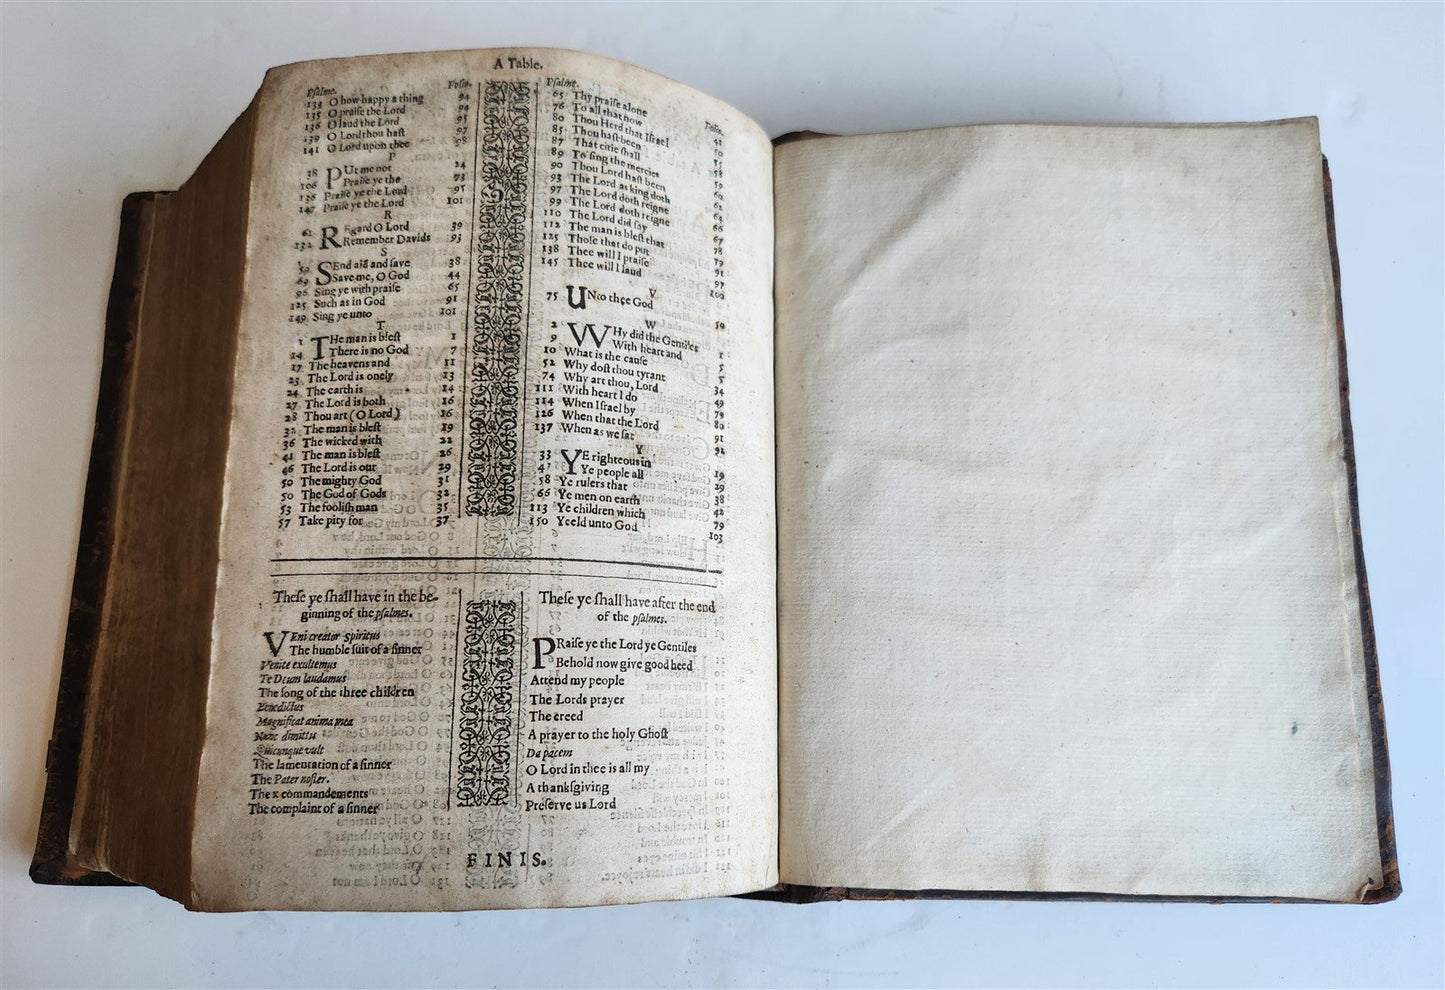 A Table.
Psalme. Folio.
134 O how happy a thing 94
135 O praise the Lord 94
136 O laud the Lord 95
139 O Lord thou hast 97
141 O Lord upon thee 98
P
38 PUt me not 24
106 Praise ye the 73
136 Praise ye the Lord 95
147 Praise ye the Lord 101
R
61 REgard O Lord 39
132 Remember Davids 93
S
59 SEnd aid and save 38
69 Save me, O God 44
96 Sing ye with praise 65
125 Such as in God 91
149 Sing ye unto 101
T
1 THe man is blest 1
14 There is no God 7
17 The heavens and 11
23 The Lord is onely 13
24 The earth is 14
27 The Lord is both 16
28 Thou art (O Lord) 16
32 The man is blest 19
36 The wicked with 22
41 The man is blest 26
46 The Lord is our 29
50 The mighty God 31
50 The God of Gods 32
53 The foolish man 35
57 Take pity for 37
Psalme. Folio.
65 Thy praise alone
76 To all that now
80 Thou Herd that Israel
85 Thou hast been
87 That citie shall
89 To sing the mercies
90 Thou Lord hast been
93 The Lord as king doth
97 The Lord doth reigne
99 The Lord doth reigne
110 The Lord did say
112 The man is blest that
125 Those that do put
138 Thee will I praise
145 Thee will I laud
V
75 UNto thee God
W
2 WHy did the Gentiles
9 With heart and
10 What is the cause
52 Why dost thou tyrant
74 Why art thou, Lord
111 With heart I do
114 When Israel by
126 When that the Lord
137 When as we sat
Y
33 YE righteous in
47 Ye people all
58 Ye rulers that
66 Ye men on earth
113 Ye children which
150 Yeeld unto God 103
These ye shall have in the be-
ginning of the psalmes.
VEni creator Spiritus
The humble suit of a sinner
Venite exultemus
Te Deum laudamus
The song of the three children
Benedictus
Magnificat anima mea
Nunc dimittis
Quicunque vult
The lamentation of a sinner
The Pater noster.
The x commandements
The complaint of a sinner
These ye shall have after the end
of the psalmes.
PRaise ye the Lord ye Gentiles
Behold now give good heed
Attend my people
The Lords prayer
The creed
A prayer to the holy Ghost
Da pacem
O Lord in thee is all my
A thanksgiving
Preserve us Lord
FINIS.